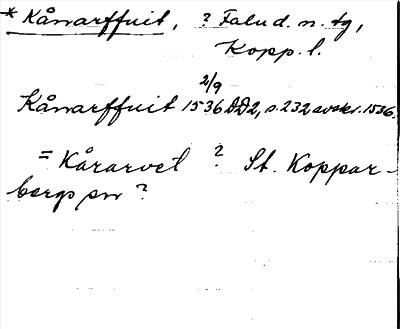 * Kånarffuit, ? Falu d. n. tg,
Kopp. l.
2/9
Kånarffuit 1536 DD2, s. 232 avskr. 1536.
= Kårarvet ? St. Koppar-
bergs sn ?